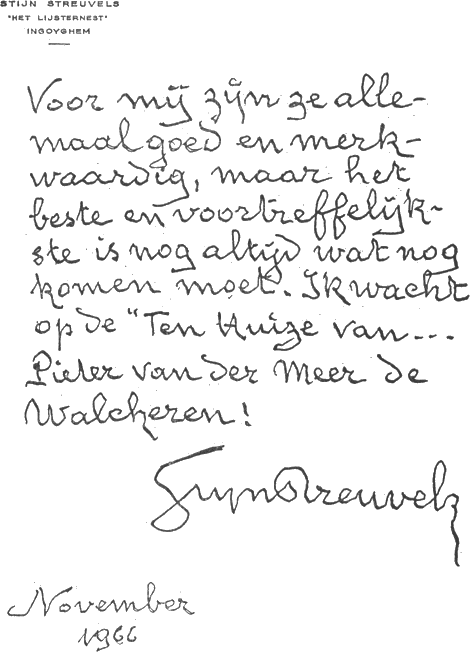 STIJN STREUVELS
"HET LIJSTERNEST"
INGOYGHEM
Voor mij zijn ze alle-
maal goed en merk-
waardig, maar het
beste en voortreffelijk-
ste is nog altijd wat nog
komen moet. Ik wacht
op de "Ten Huize van...
Pieter van der Meer de
Walcheren!
Stijn Streuvels
November
1966